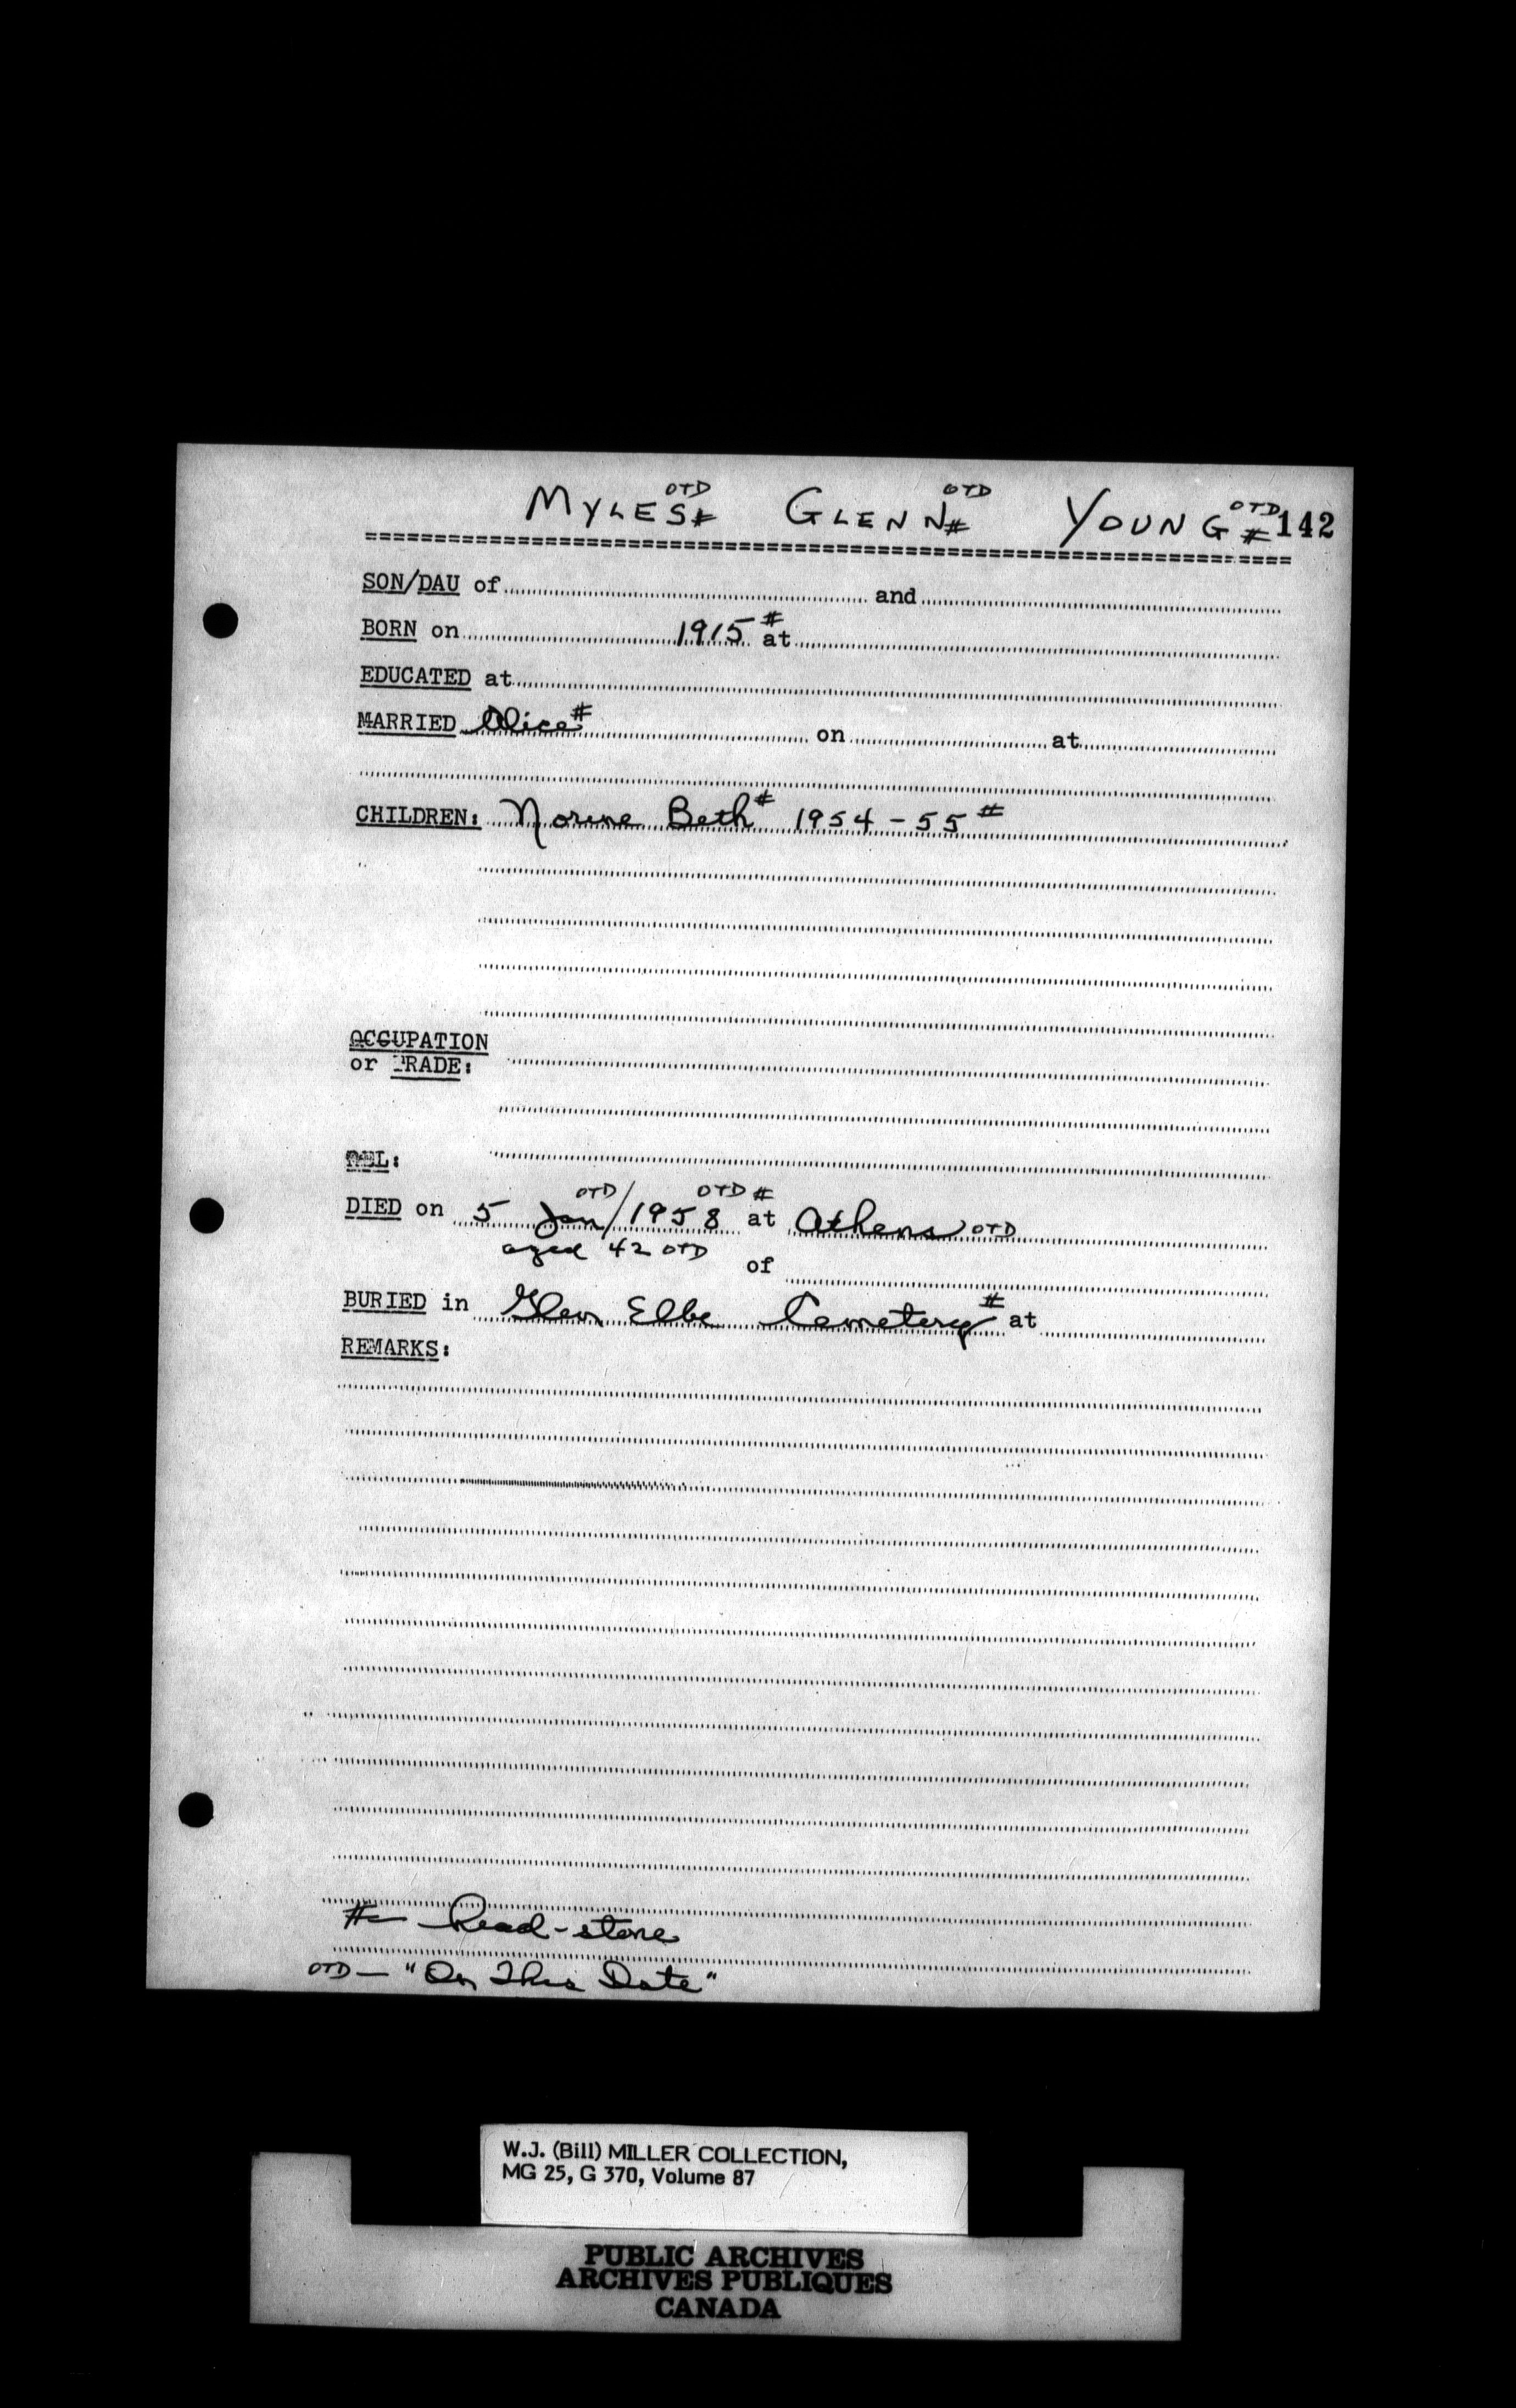 MYLES# OTD GLENN# OTD YOUNG# OTD 142
SON/DAU of and
BORN on 1915 # at
EDUCATED at
MARRIED Alice# on at
CHILDREN: Norine Beth# 1954-55#
OCCUPATION
or TRADE:
REL:
DIED on 5 Jan OTD/1958 OTD # at Athens OTD
aged 42 OTD of
BURIED in Glen Elbe Cemetery# at
REMARKS:
# — Head-stone
OTD — "On This Date"
W.J. (Bill) MILLER COLLECTION,
MG 25, G 370, Volume 87
PUBLIC ARCHIVES
ARCHIVES PUBLIQUES
CANADA